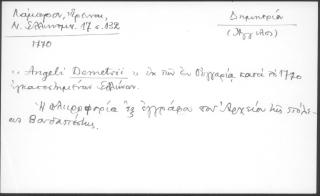 Λάμπρου, Σπυρίδ.
Ν. Ἑλληνομν. 17 σ. 132
1770
Δημητρίου
(Ἄγγελος)
"Angeli Demetrii" ἐκ τῶν ἐν Οὑγγαρίᾳ κατὰ τὸ 1770
ἐγκατεστημένων Ἑλλήνων.
Ἡ πληροφορία ἐξ ἐγγράφου τοῦ Ἀρχείου τῆς πόλε-
ως Βουδαπέστης.